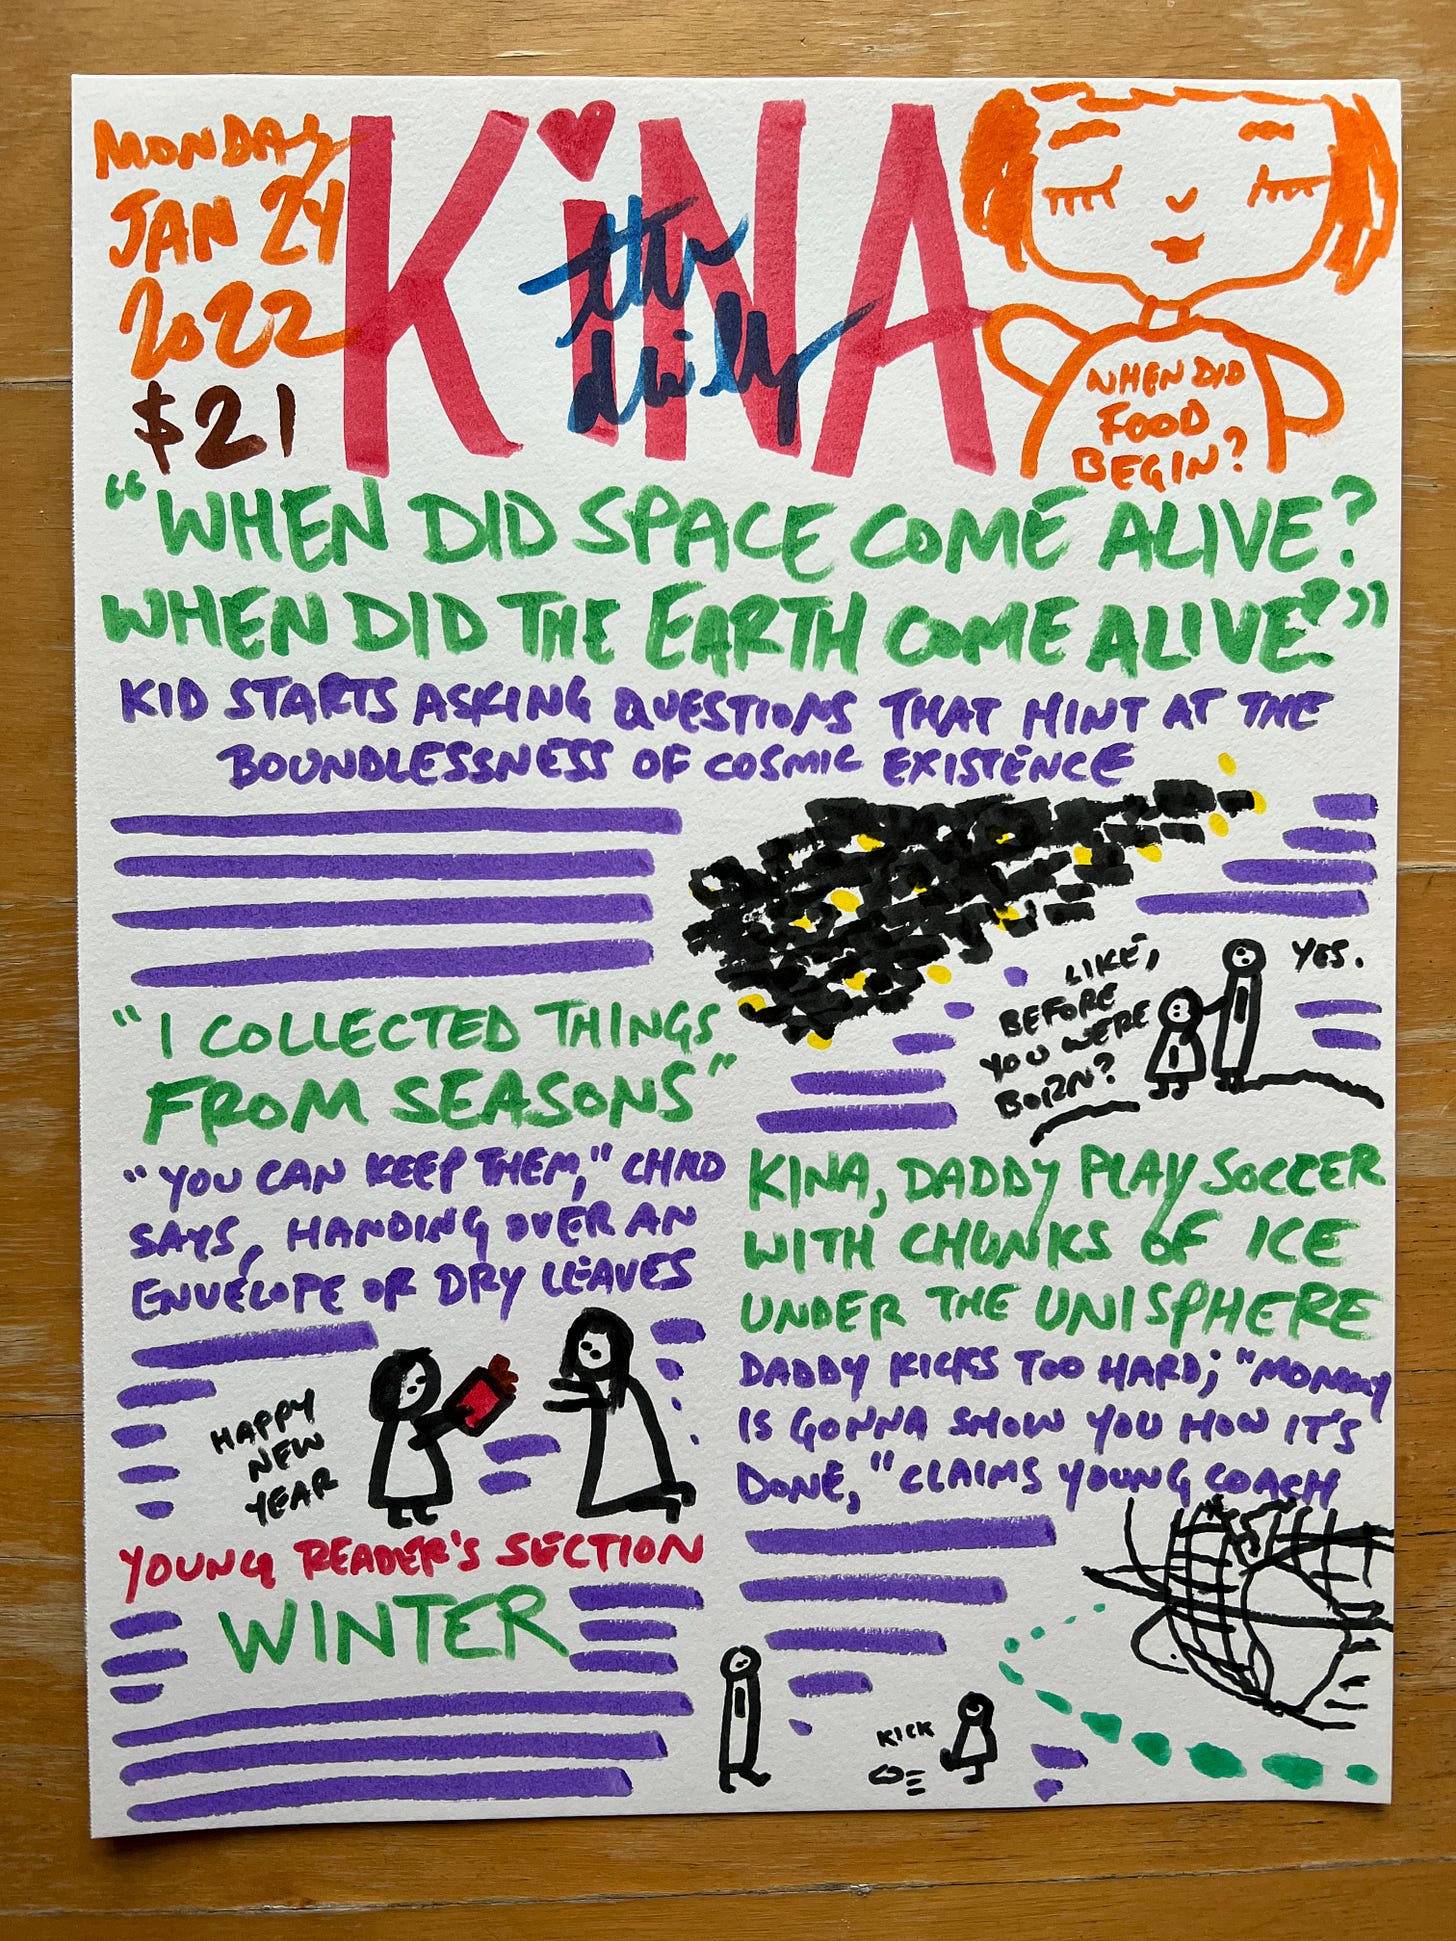 MONDAY
JAN 24
2022
$21
KiNA
the
daily
WHEN DID
FOOD
BEGIN?
"WHEN DID SPACE COME ALIVE?
WHEN DID THE EARTH COME ALIVE?"
KID STARTS ASKING QUESTIONS THAT HINT AT THE
BOUNDLESSNESS OF COSMIC EXISTENCE
LIKE,
BEFORE
YOU WERE
BORN?
YES.
"I COLLECTED THINGS
FROM SEASONS"
"YOU CAN KEEP THEM," CHILD
SAYS, HANDING OVER AN
ENVELOPE OF DRY LEAVES
HAPPY
NEW
YEAR
KINA, DADDY PLAY SOCCER
WITH CHUNKS OF ICE
UNDER THE UNISPHERE
DADDY KICKS TOO HARD; "MOMMY
IS GONNA SHOW YOU HOW IT'S
DONE," CLAIMS YOUNG COACH
KICK
YOUNG READER'S SECTION
WINTER